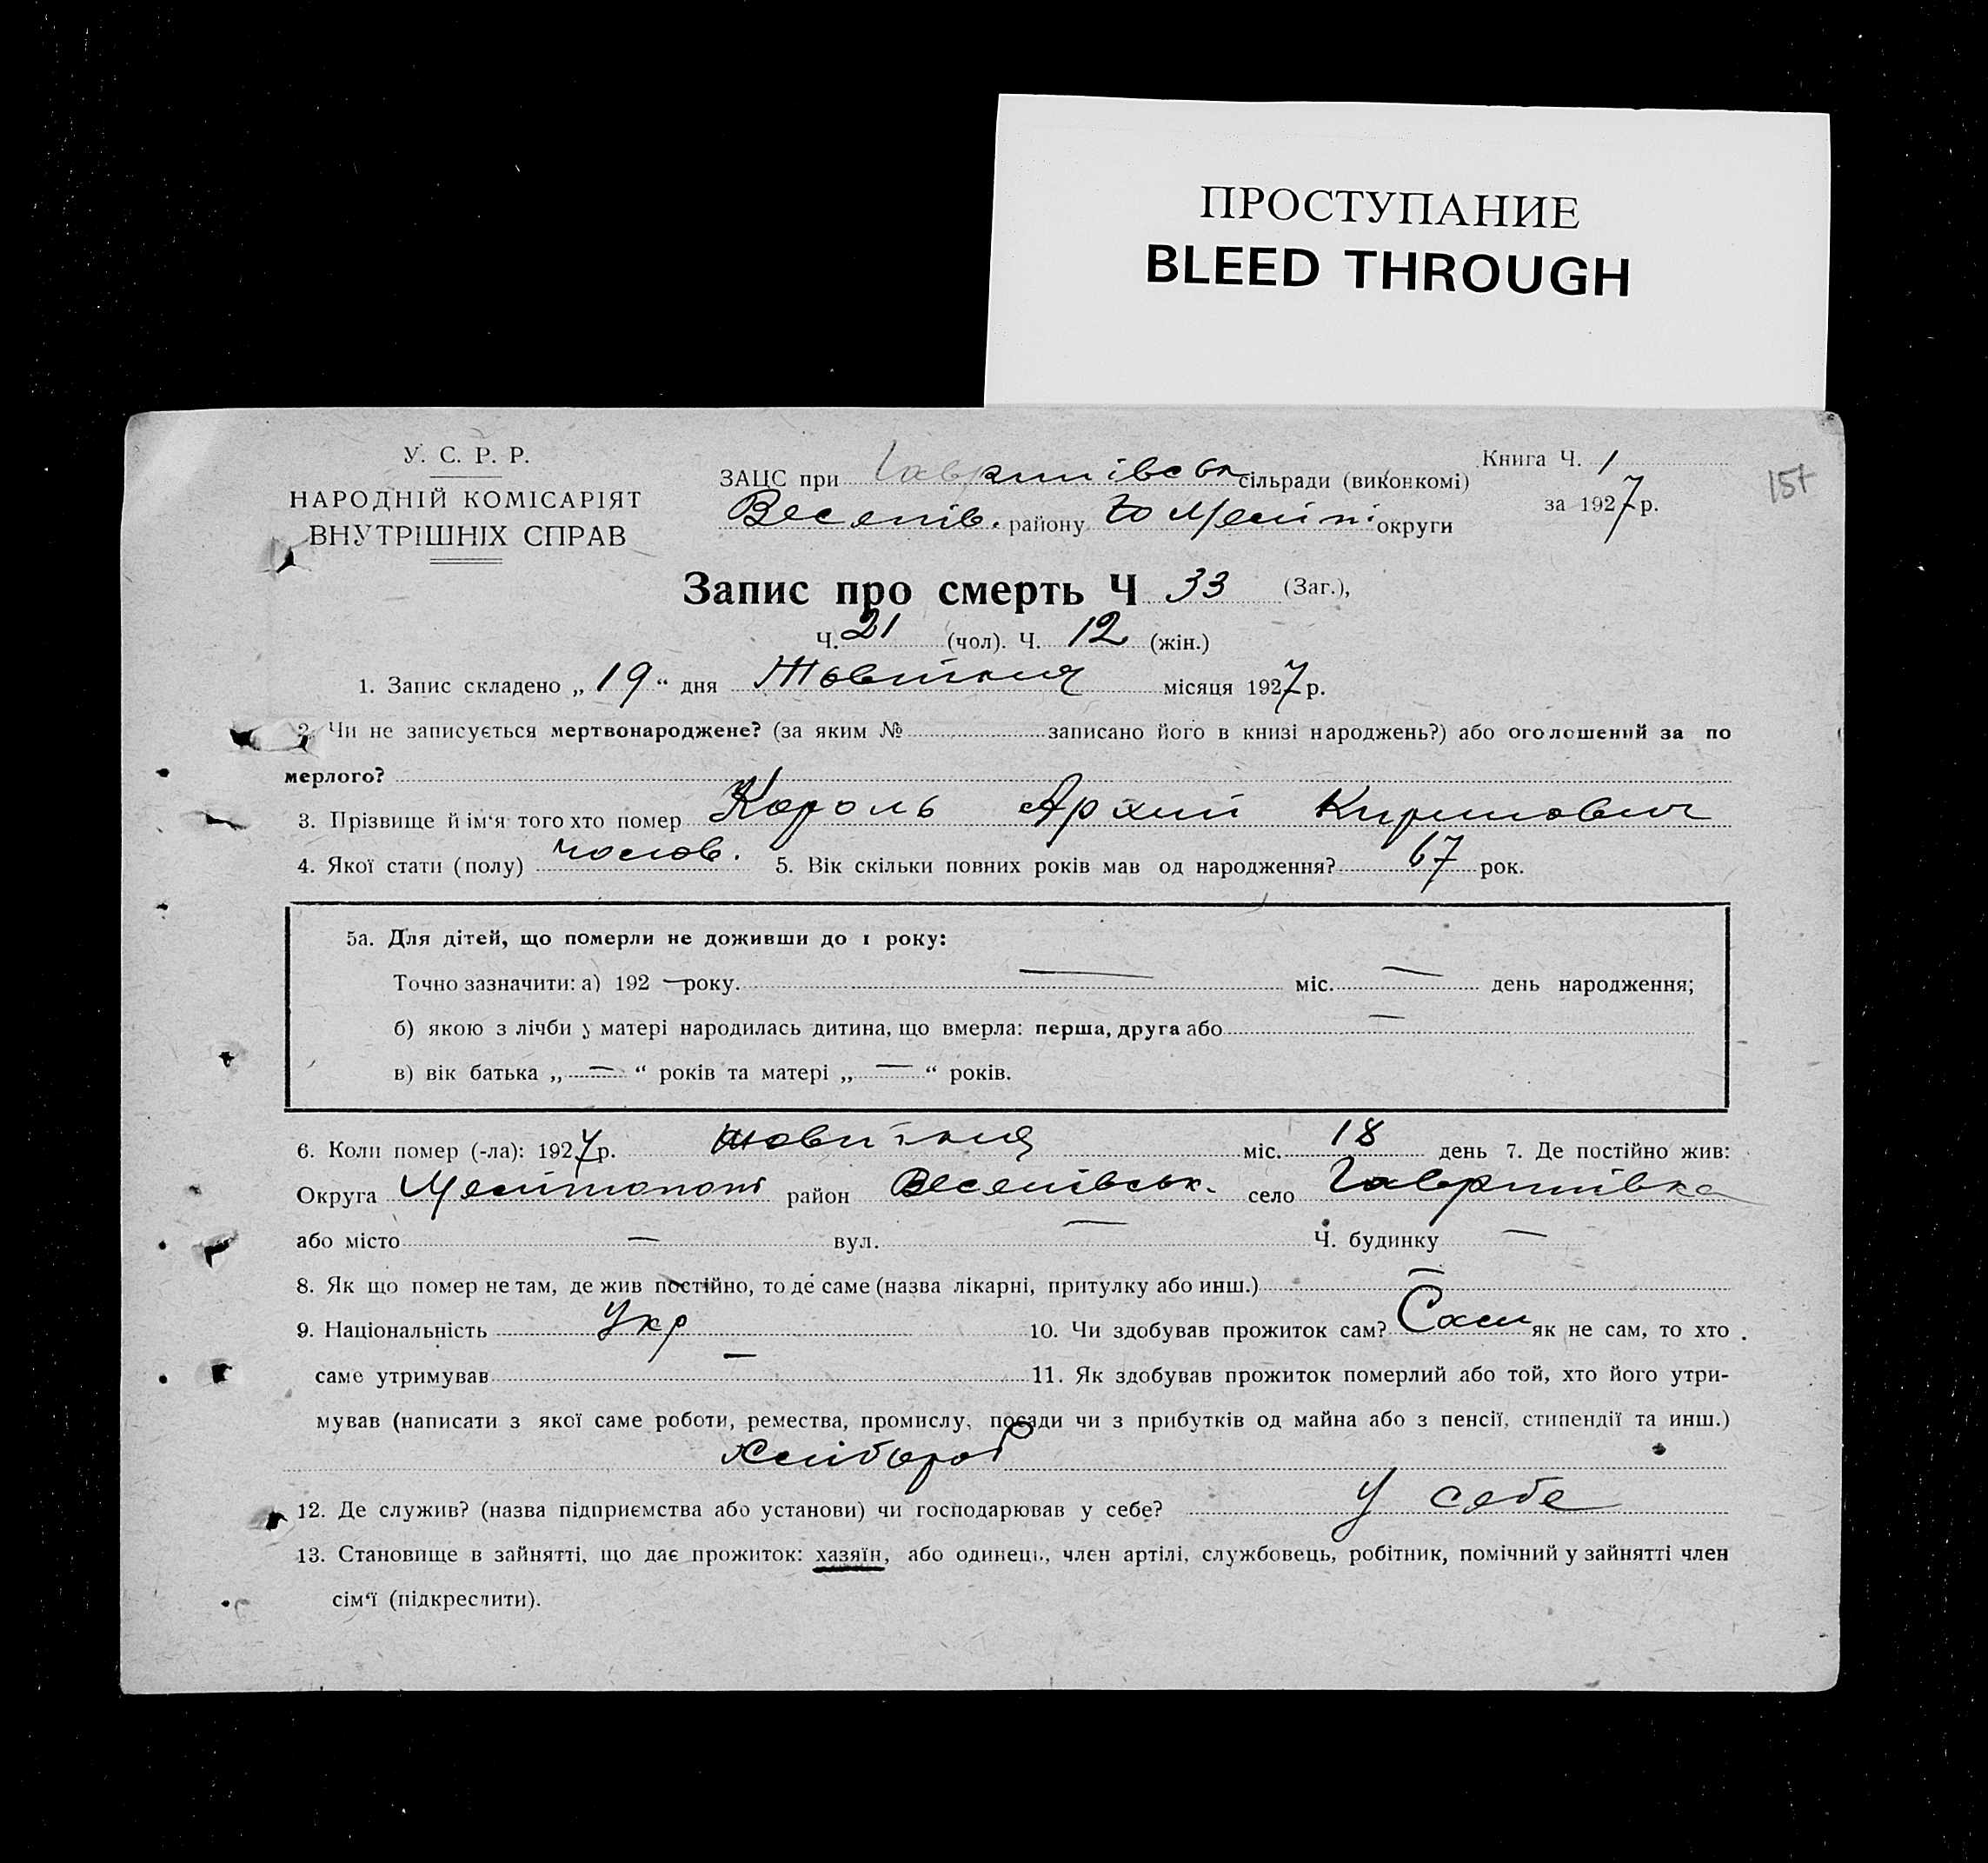 ПРОСТУПАНИЕ
BLEED THROUGH
У. С. Р. Р.
НАРОДНІЙ КОМІСАРІЯТ
ВНУТРІШНІХ СПРАВ
ЗАЦС при Гаврилівськ сільради (виконкомі)
Веселів. району Меліт. округи
Книга Ч. 1
за 1927 р.
Запис про смерть Ч 33 (Заг.),
Ч. 21 (чол). Ч. 12 (жін.)
1. Запис складено „19“ дня Жовтня місяця 1927 р.
2. Чи не записується мертвонароджене? (за яким № записано його в книзі народжень?) або оголошений за по
мерлого?
3. Прізвище й ім‘я того хто помер Король Архип Кирилович
4. Якої стати (полу) чолов. 5. Вік скільки повних років мав од народження? 67 рок.
5а. Для дітей, що померли не доживши до 1 року:
Точно зазначити: а) 192 — року. — міс. — день народження;
б) якою з лічби у матері народилась дитина, що вмерла: перша, друга або —
в) вік батька „ — “ років та матері „ — “ років.
6. Коли помер (-ла): 1927 р. жовтня міс. 18 день 7. Де постійно жив:
Округа Мелітопол район Веселівськ. село Гаврилівка
або місто — вул. — Ч. будинку —
8. Як що помер не там, де жив постійно, то де саме (назва лікарні, притулку або инш.) —
9. Національність Укр 10. Чи здобував прожиток сам? Сам як не сам, то хто
саме утримував — 11. Як здобував прожиток померлий або той, хто його утри-
мував (написати з якої саме роботи, ремества, промислу, посади чи з прибутків од майна або з пенсії, стипендії та инш.)
Хлібороб
12. Де служив? (назва підприємства або установи) чи господарював у себе? У себе
13. Становище в зайнятті, що дає прожиток: хазяїн, або одинець, член артілі, службовець, робітник, помічний у зайнятті член
сім‘ї (підкреслити).